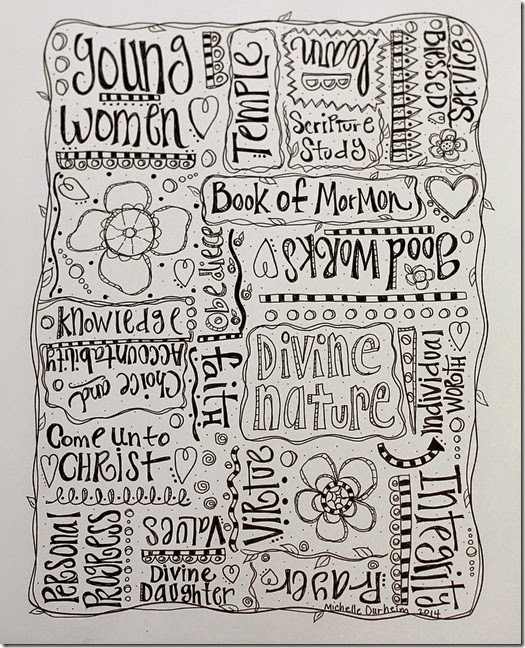 young
women
TEMPLE
learn
Scripture
Study
Blessed
Service
Book of Mormon
obediece
good works
Knowledge
Choice and
Accountability
faith
Divine
nature
Individual
Worth
Come Unto
CHRIST
Virtue
Integrity
Personal
Progress
Values
Divine
Daughter
Prayer
Michelle Durhelm 2014